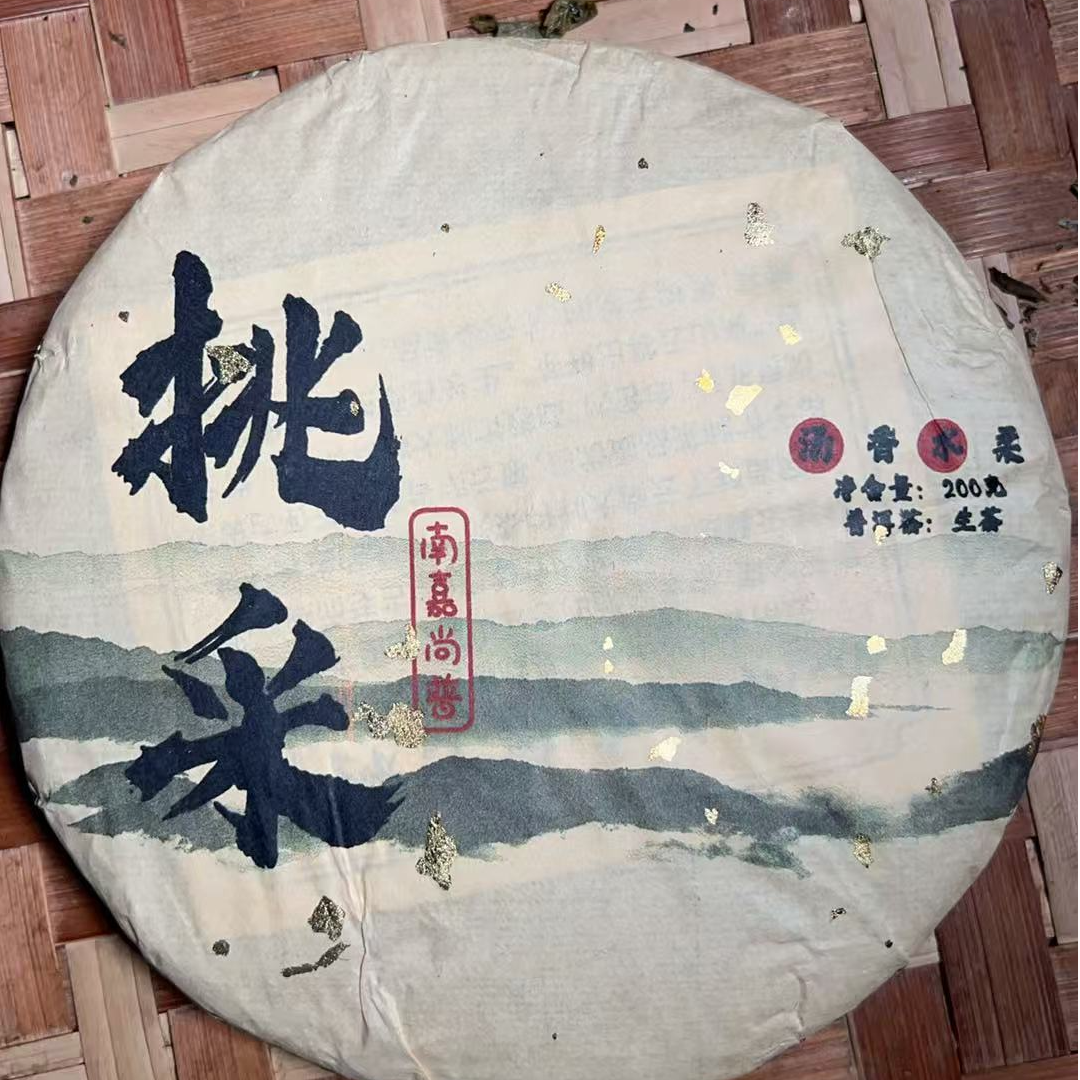 挑采
南嘉尚普
汤香水柔
净含量：200克
普洱茶：生茶